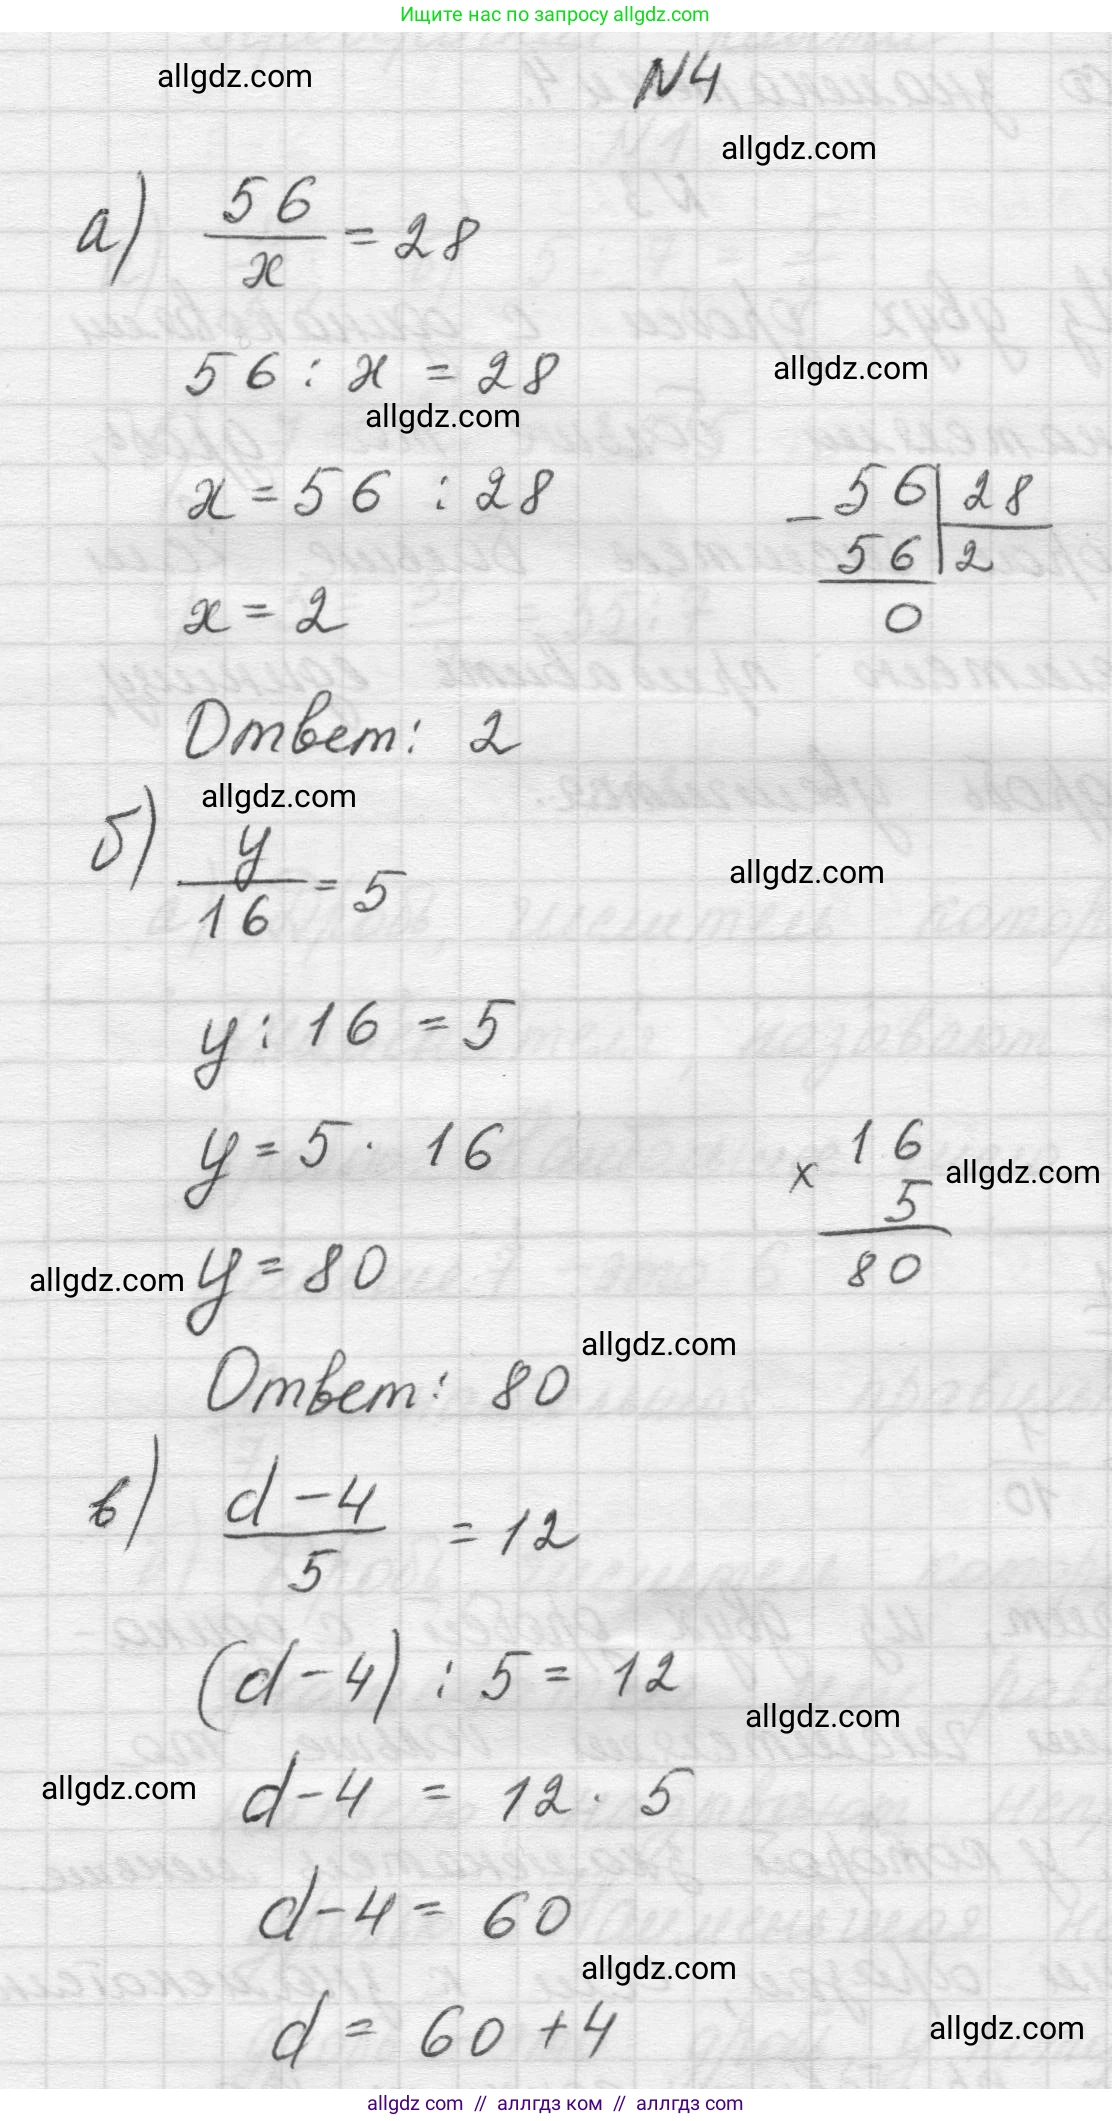 Ищите нас по запросу allgdz.com
allgdz.com
N4
allgdz.com
а) 56/x = 28
56 : x = 28
allgdz.com
allgdz.com
x = 56 : 28
- 56 | 28
56 | 2
0
x = 2
Ответ: 2
allgdz.com
б) y/16 = 5
allgdz.com
y : 16 = 5
y = 5 · 16
x 16
5
80
allgdz.com
y = 80
allgdz.com
allgdz.com
Ответ: 80
в) d - 4/5 = 12
(d - 4) : 5 = 12
allgdz.com
allgdz.com
d - 4 = 12 · 5
d - 4 = 60
allgdz.com
d = 60 + 4
allgdz.com
allgdz.com // аллгдз ком // аллгдз.com